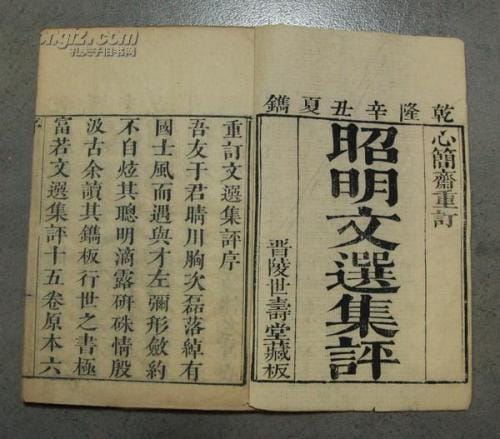 乾隆辛丑夏鐫
心簡齋重訂
昭明文選集評
晋陵世壽堂藏板
重訂文選集評序
吾友于君晴川胸次磊落綽有
國士風而遇與才左彌形斂約
不自炫其聰明滴露研硃情殷
汲古余讀其鐫板行世之書極
富若文選集評十五卷原本六
孔夫子旧书网